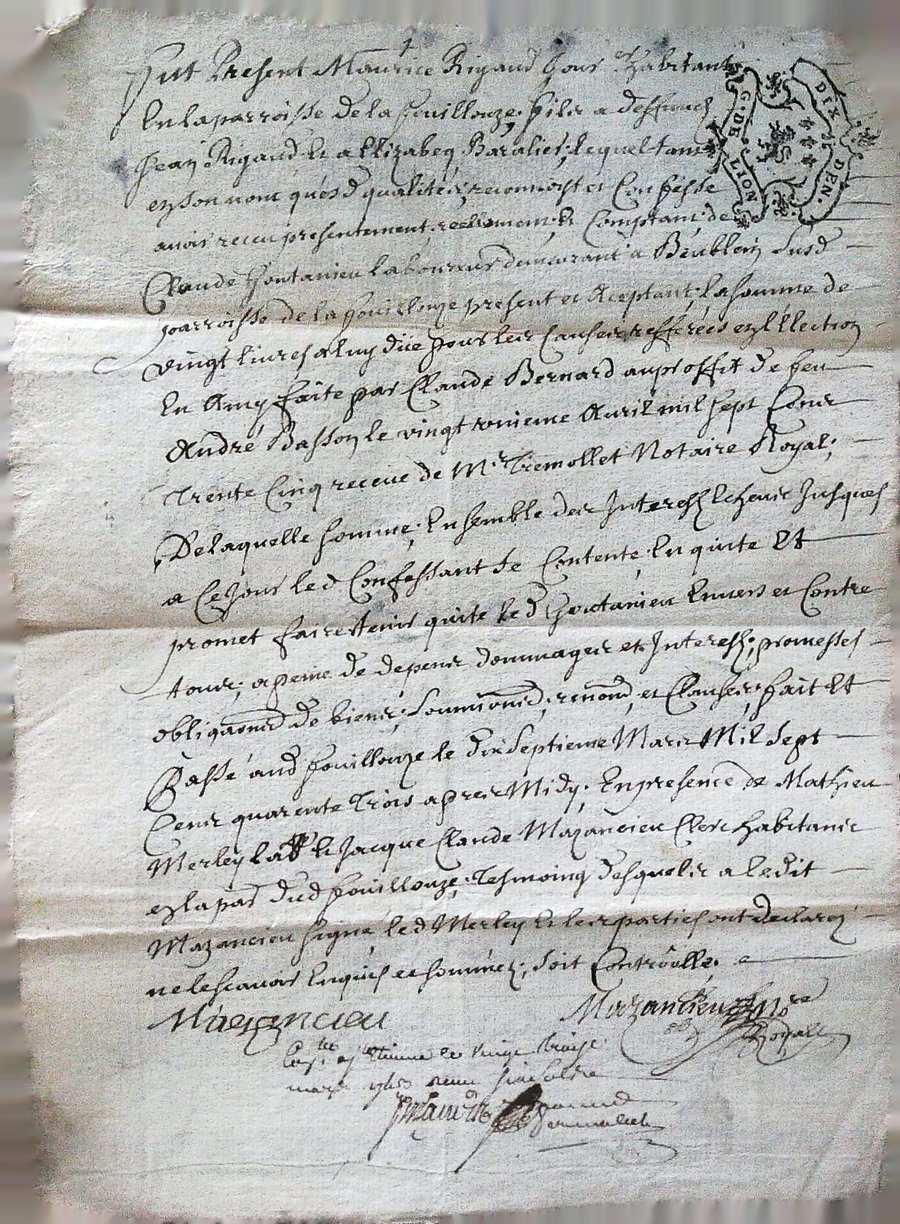 Fut Present Maurice Rigaud Jour habitant
En la parroisse de la fouillouze, filz a deffunct
Jean Rigaud Et a Elizabeq Baralier, lequel tant
en son nom ques d qualité reconnoist et Confesse
avoir receu presentement, reellement, Et Comptant, de
Claude laboureur demeurant a susd
parroisse de la fouillouze present et Aceptant, la somme de
vingt livres a luy düe pour les Causes refferées en l'Election
En Amy faite par Claude Bernard au proffit de feu
André Basson le vingt Avril mil sept Cens
Trente Cinq receue de Mr. Tremollet Notaire Royal;
De laquelle somme, Ensemble des Interestz Jusques
a Ce Jour led Confessant se Contente, En quite Et
promet faire tenir quite led Envers et Contre
tous; a peine de depens dommages et Interestz; promesses
obliga͠o͠nd de biens, renond, et Clauses, fait Et
Passé aud fouillouze le dix Septieme Mars Mil Sept
Cens quarente Trois apres Midy. En presence de Mathieu
Merley labr. & Jacque Claude Mazancieu Clerc habitans
en la par dud fouillouze, Tesmoing desquelz a ledit
Mazancieu signé, led Merley Et les parties ont declaré
ne le scavoir Enquis et sommés; soit Controolle.
Mazancieu
Mazancieu Nore
Royal
mars
G. DE LION
DIX DEN.